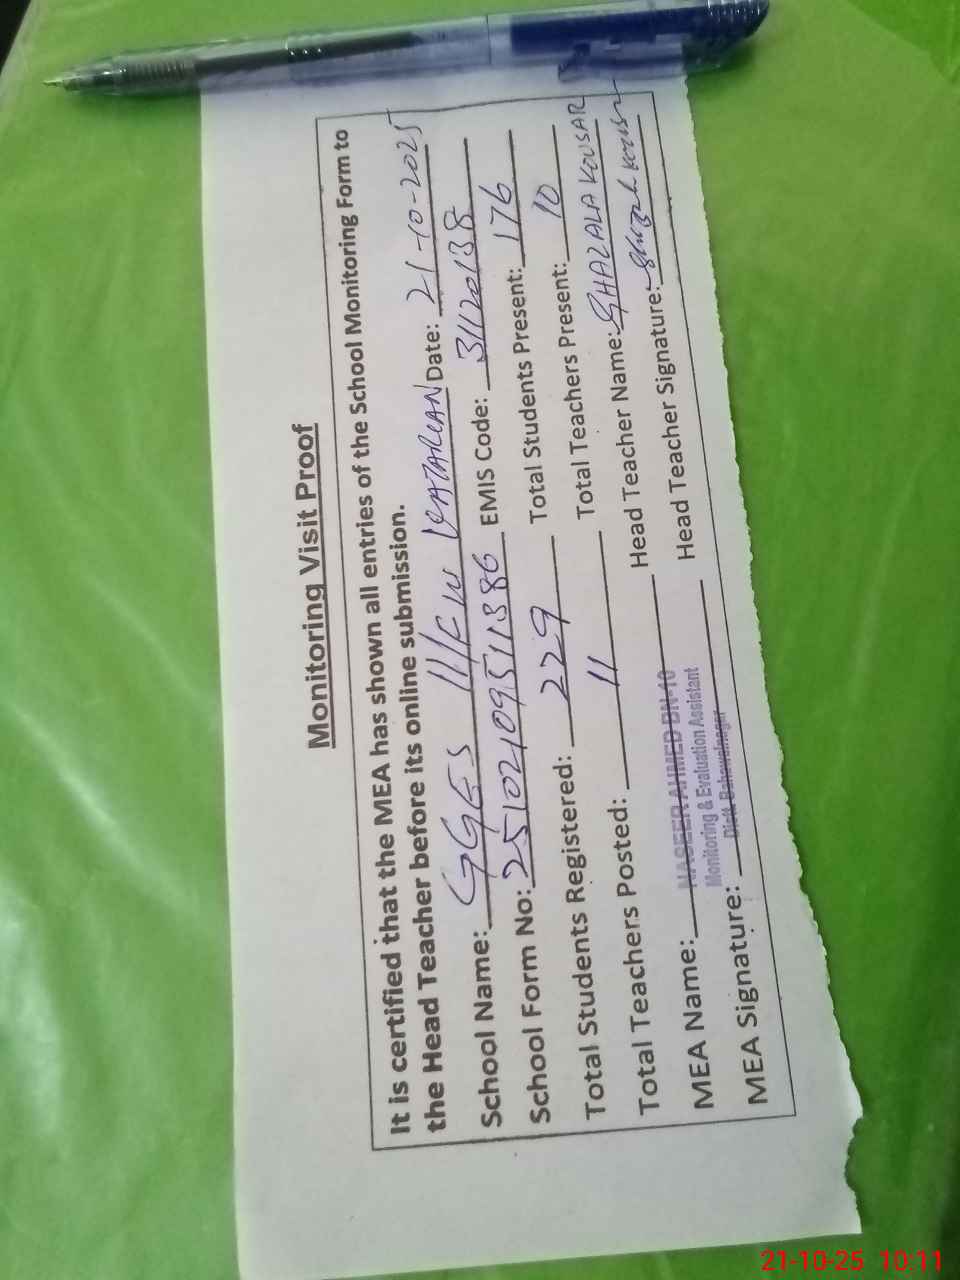 Monitoring Visit Proof
It is certified that the MEA has shown all entries of the School Monitoring Form to
the Head Teacher before its online submission.
School Name: GGES 111/6W KATARIAN Date: 21-10-2025
School Form No: 25102109511386 EMIS Code: 31120138
Total Students Registered: 229 Total Students Present: 176
Total Teachers Posted: 11 Total Teachers Present: 10
MEA Name: NASEER AHMED BN-10 Head Teacher Name: GHAZALA KOUSAR
Monitoring & Evaluation Assistant
MEA Signature: Distt. Bahawalnagar Head Teacher Signature:
21-10-25 10:11